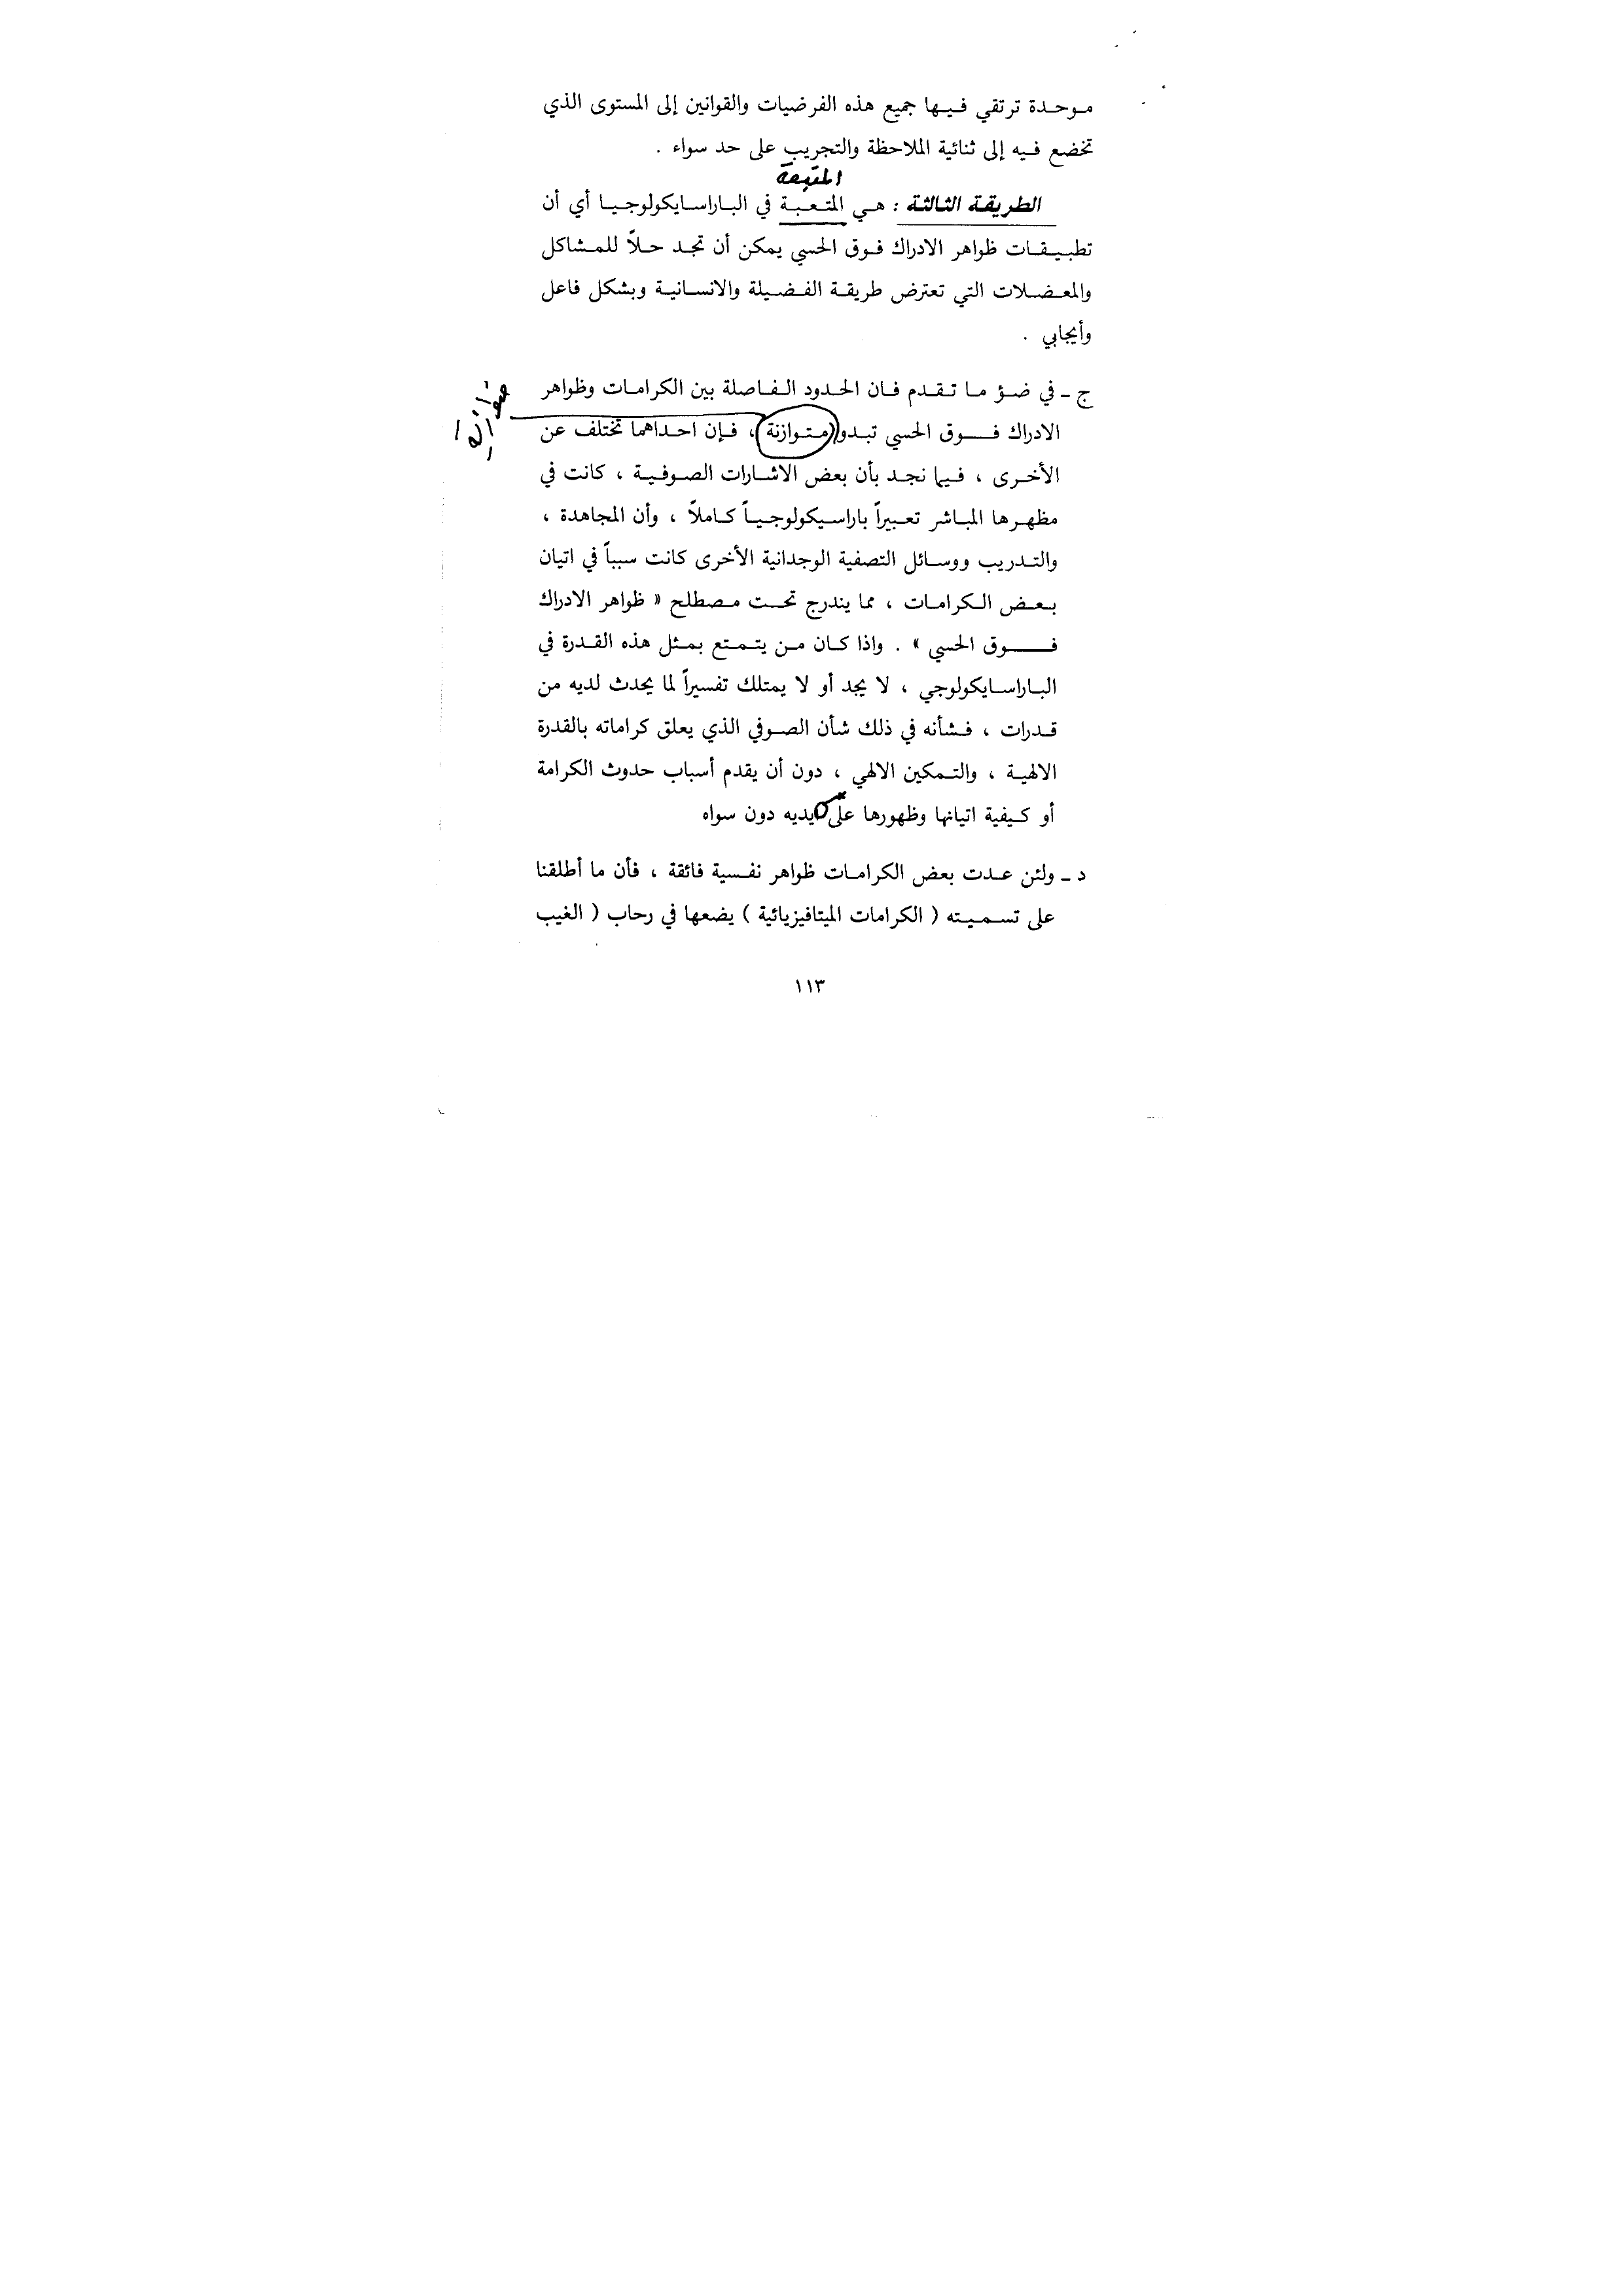 موحدة ترتقي فيها جميع هذه الفرضيات والقوانين إلى المستوى الذي
تخضع فيه إلى ثنائية الملاحظة والتجريب على حد سواء .
المتبعة
الطريقة الثالثة : هي المتعبة في الباراسايكولوجيا أي أن
تطبيقات ظواهر الادراك فوق الحسي يمكن أن تجد حلاً للمشاكل
والمعضلات التي تعترض طريقة الفضيلة والانسانية وبشكل فاعل
وأيجابي .
ج ـ في ضؤ ما تقدم فان الحدود الفاصلة بين الكرامات وظواهر
الادراك فوق الحسي تبدو متوازنة ، فإن احداهما تختلف عن
الأخرى ، فيما نجد بأن بعض الاشارات الصوفية ، كانت في
مظهرها المباشر تعبيراً باراسيكولوجياً كاملاً ، وأن المجاهدة ،
والتدريب ووسائل التصفية الوجدانية الأخرى كانت سبباً في اتيان
بعض الكرامات ، مما يندرج تحت مصطلح « ظواهر الادراك
فوق الحسي » . واذا كان من يتمتع بمثل هذه القدرة في
الباراسايكولوجي ، لا يجد أو لا يمتلك تفسيراً لما يحدث لديه من
قدرات ، فشأنه في ذلك شأن الصوفي الذي يعلق كراماته بالقدرة
الالهية ، والتمكين الالهي ، دون أن يقدم أسباب حدوث الكرامة
أو كيفية اتيانها وظهورها على يديه دون سواه
د ـ ولئن عدت بعض الكرامات ظواهر نفسية فائقة ، فأن ما أطلقنا
على تسميته ( الكرامات الميتافيزيائية ) يضعها في رحاب ( الغيب
١١٣